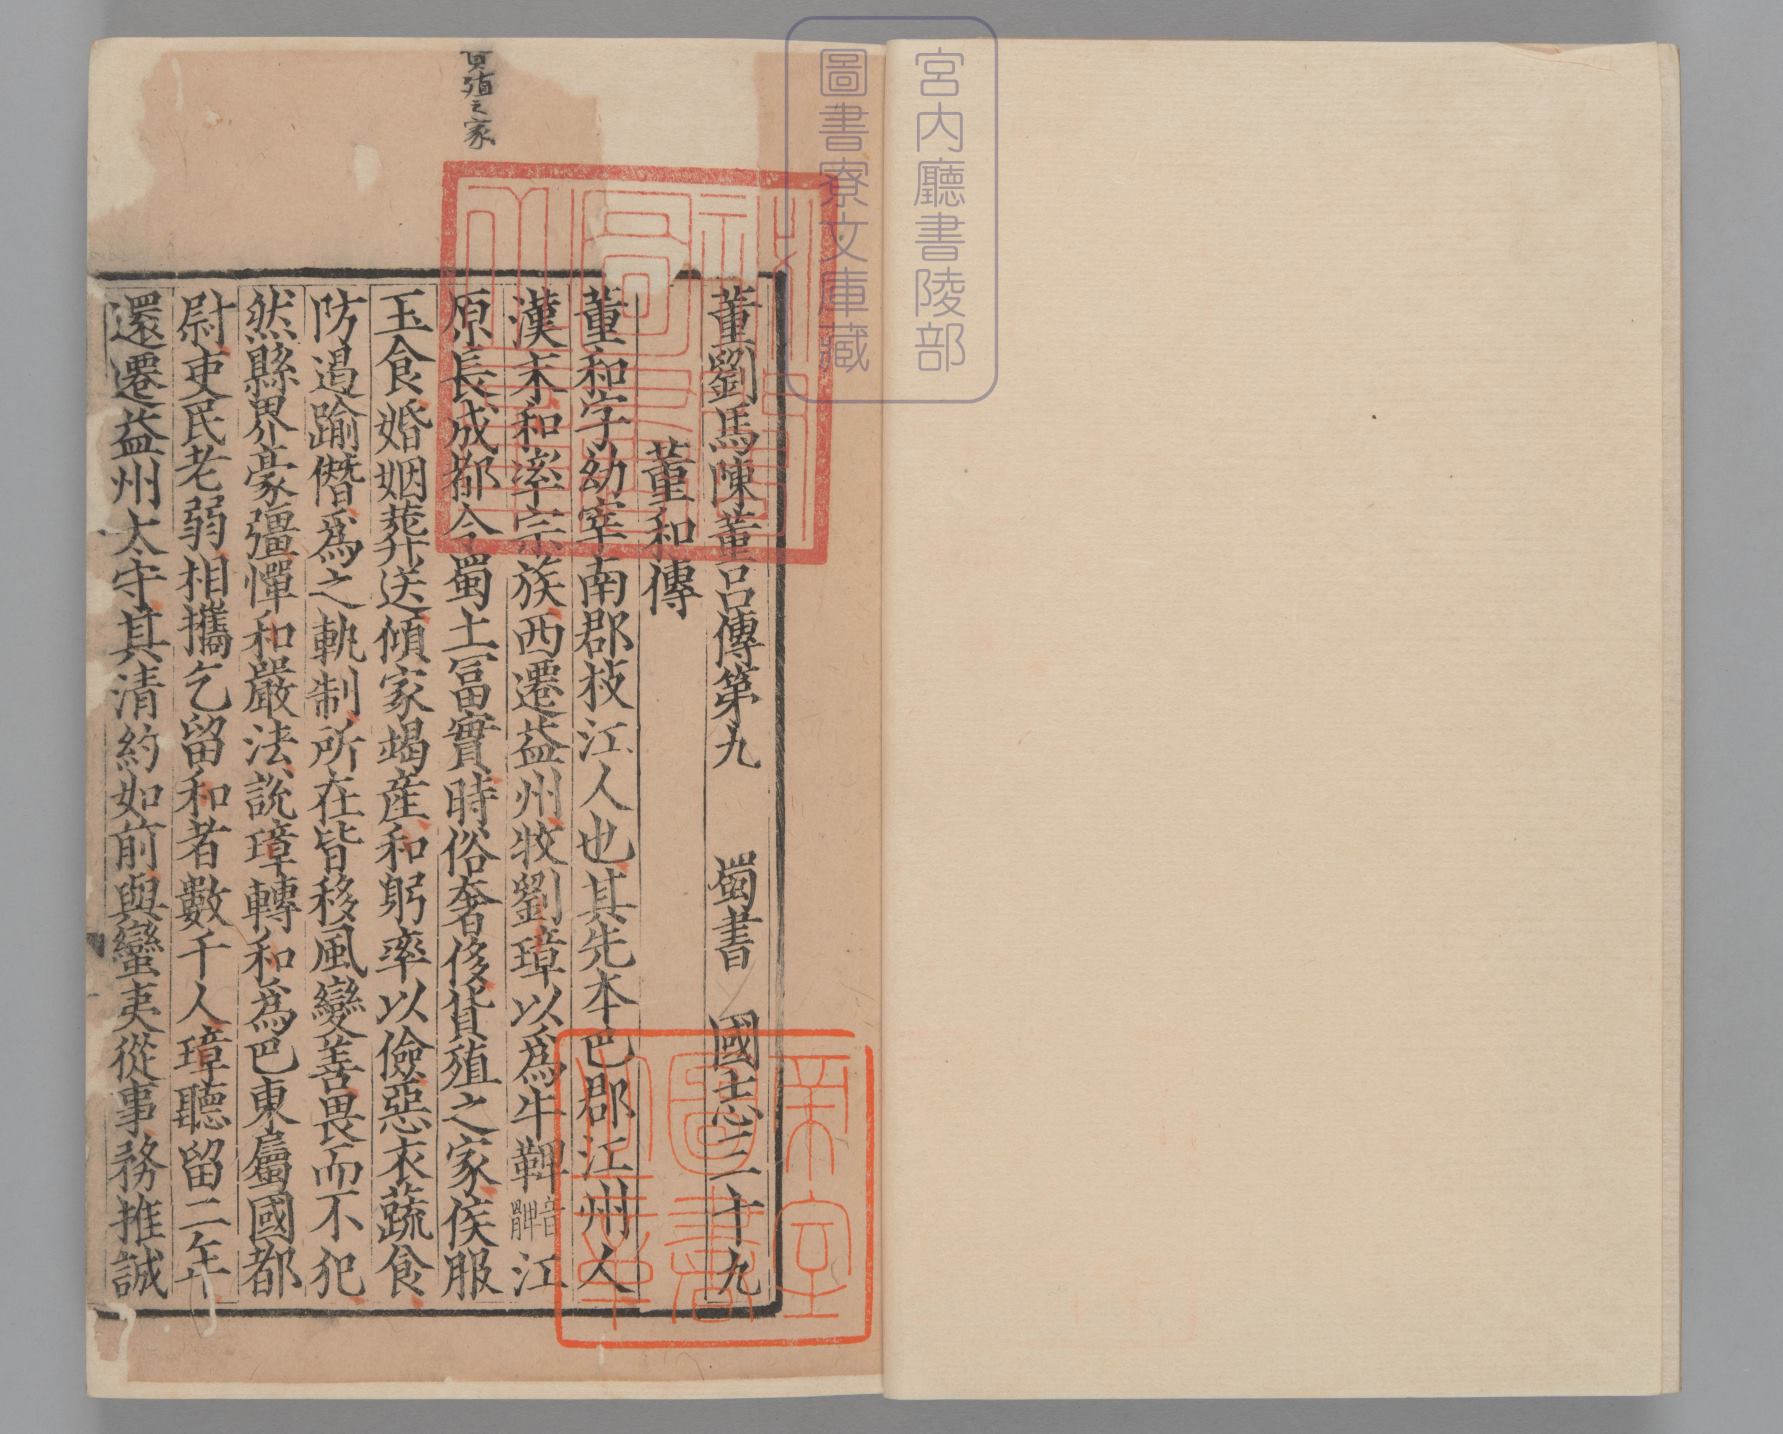 宮内廳書陵部
圖書寮文庫藏
董劉馬陳董呂傳第九 蜀書 國志三十九
董和傳
董和字幼宰南郡枝江人也其先本巴郡江州人
漢末和率宗族西遷益州牧劉璋以爲牛鞞音髀江
原長成都令蜀土富實時俗奢侈貨殖之家侯服
玉食婚姻葬送傾家竭産和躬率以儉惡衣蔬食
防遏踰僭爲之軌制所在皆移風變善畏而不犯
然縣界豪彊憚和嚴法說璋轉和爲巴東屬國都
尉吏民老弱相攜乞留和者數千人璋聽留二年
還遷益州太守其清約如前與蠻夷從事務推誠
殖之家
帝室圖書